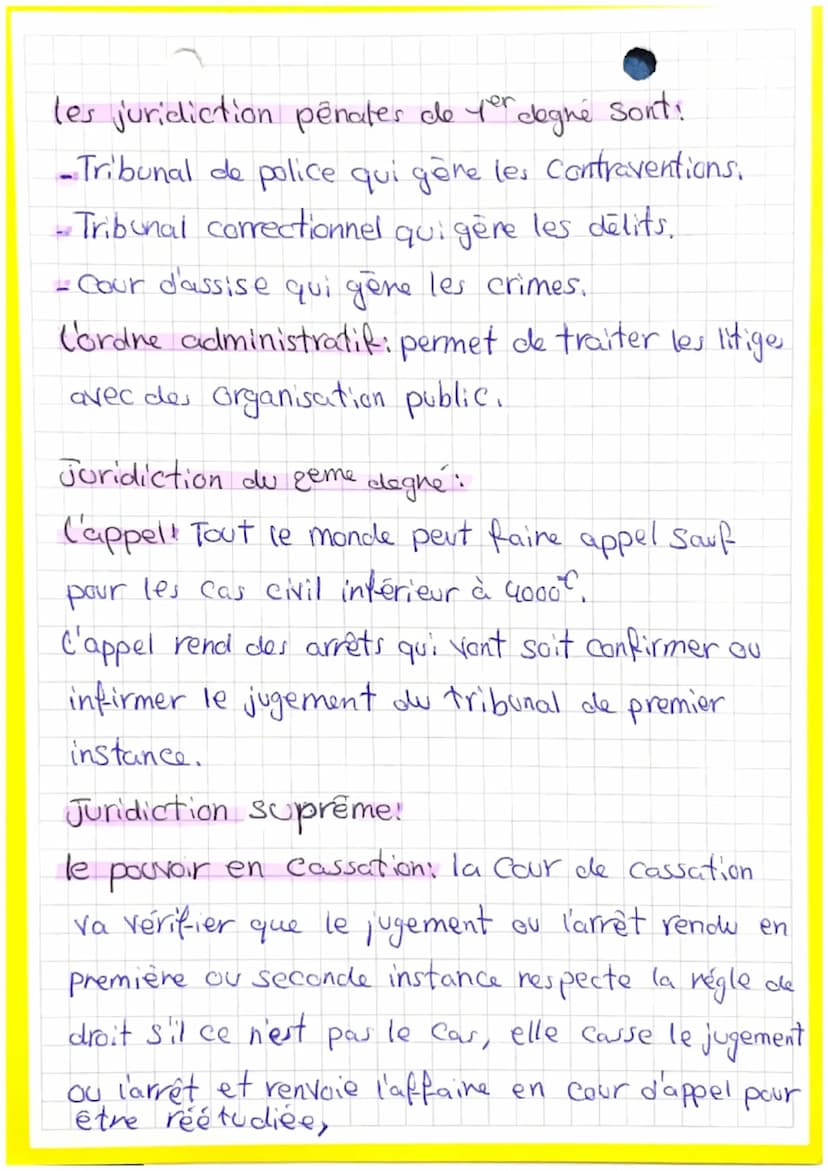 les juridiction pénales de 1er degré sont:
- Tribunal de police qui gère les Contraventions.
- Tribunal correctionnel qui gère les délits.
- Cour d'assise qui gère les crimes.
L'ordre administratif: permet de traiter les litige
avec des organisation public.
Juridiction du 2eme degré:
L'appel: Tout le monde peut faire appel sauf
pour les cas civil inférieur à 4000€.
L'appel rend des arrêts qui vont soit confirmer ou
infirmer le jugement du tribunal de premier
instance.
Juridiction suprême:
le pouvoir en Cassation: la Cour de cassation
va vérifier que le jugement ou l'arrêt rendu en
première ou seconde instance respecte la régle de
droit s'il ce n'est pas le cas, elle casse le jugement
ou l'arrêt et renvoie l'affaire en cour d'appel pour
être réétudiée,